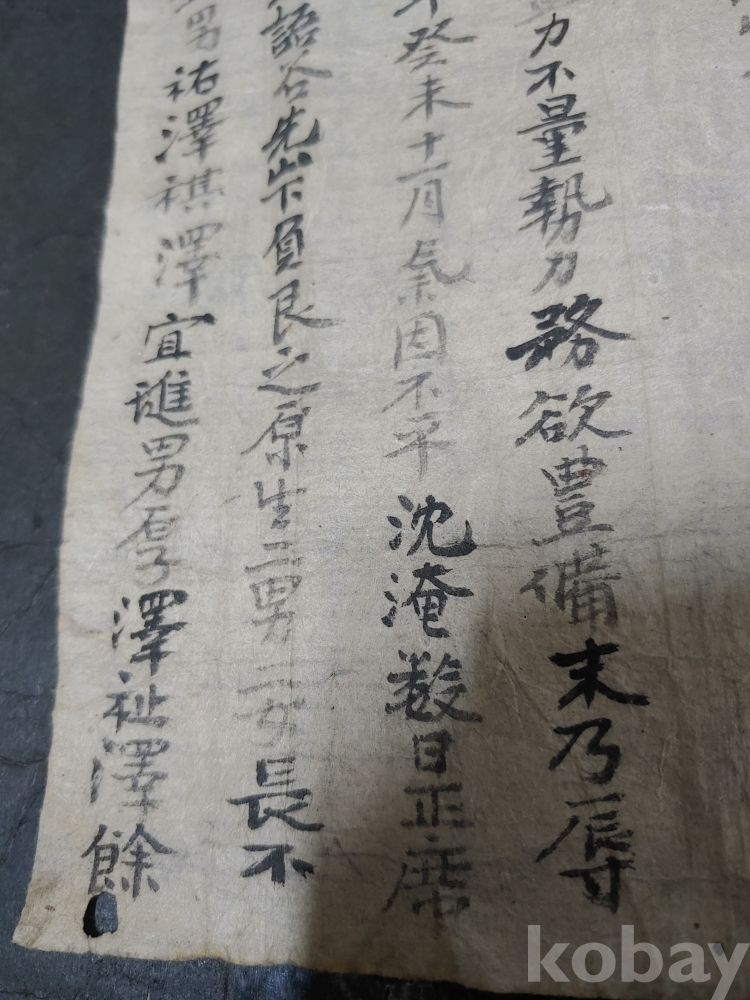 力不量勢力務欲豊備末乃辱
癸未十一月氣因不平沈淹數日正席
語谷先山下負艮之原生二男二女長不
男祐澤祺澤宜進男厚澤祉澤餘
kobay